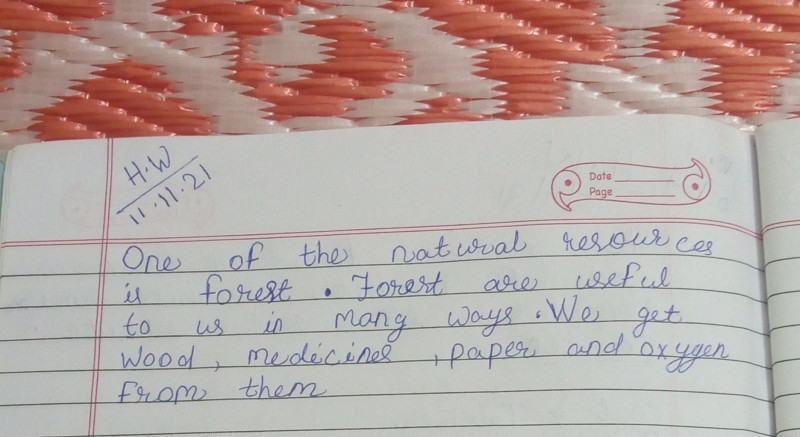 H.W
11.11.21
Date
Page
One of the natural resources
is forest. Forest are useful
to us in many ways. We get
wood, medicines, paper and oxygen
from them